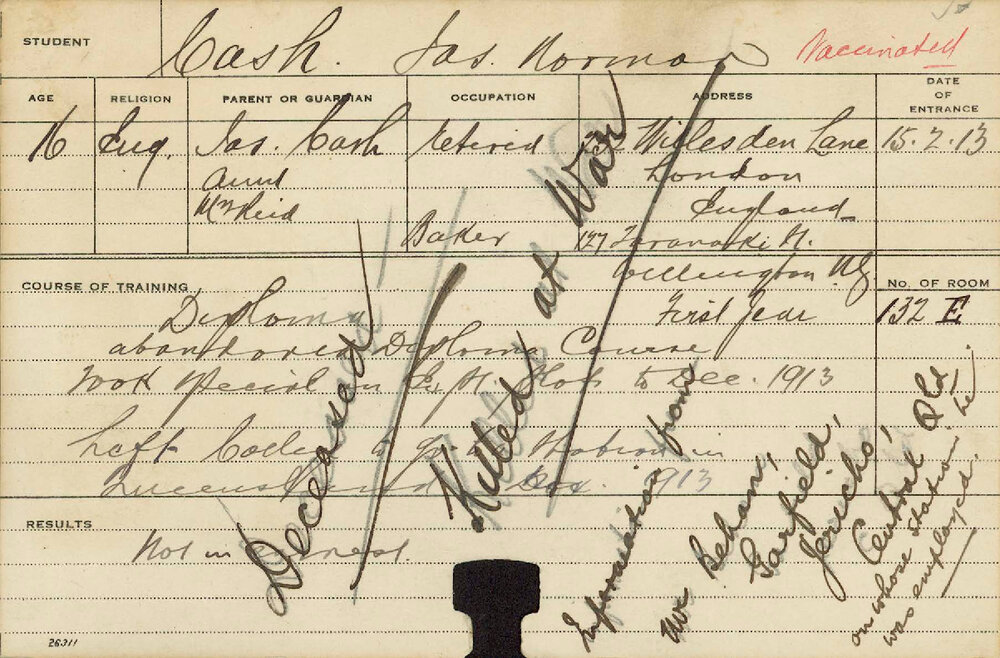 STUDENT Cash. Jas. Norman Vaccinated
AGE RELIGION PARENT OR GUARDIAN OCCUPATION ADDRESS DATE OF ENTRANCE
16 Eng. Jas. Cash Retired Willesden Lane 15.2.13
Aunt London
Mrs Reid England
Baker 127 Taranaki St.
COURSE OF TRAINING Wellington N.Z. No. OF ROOM
Diploma First Year 132 E
abandoned Diploma Course
Took Special in to Dec. 1913
Left College to go Station in
Queensland Dec. 1913
RESULTS
Not in earnest.
Deceased
Killed at War
Information from
Mr Behan,
Garfield,
Jericho,
Central Qld,
on whose station he
was employed.
26311